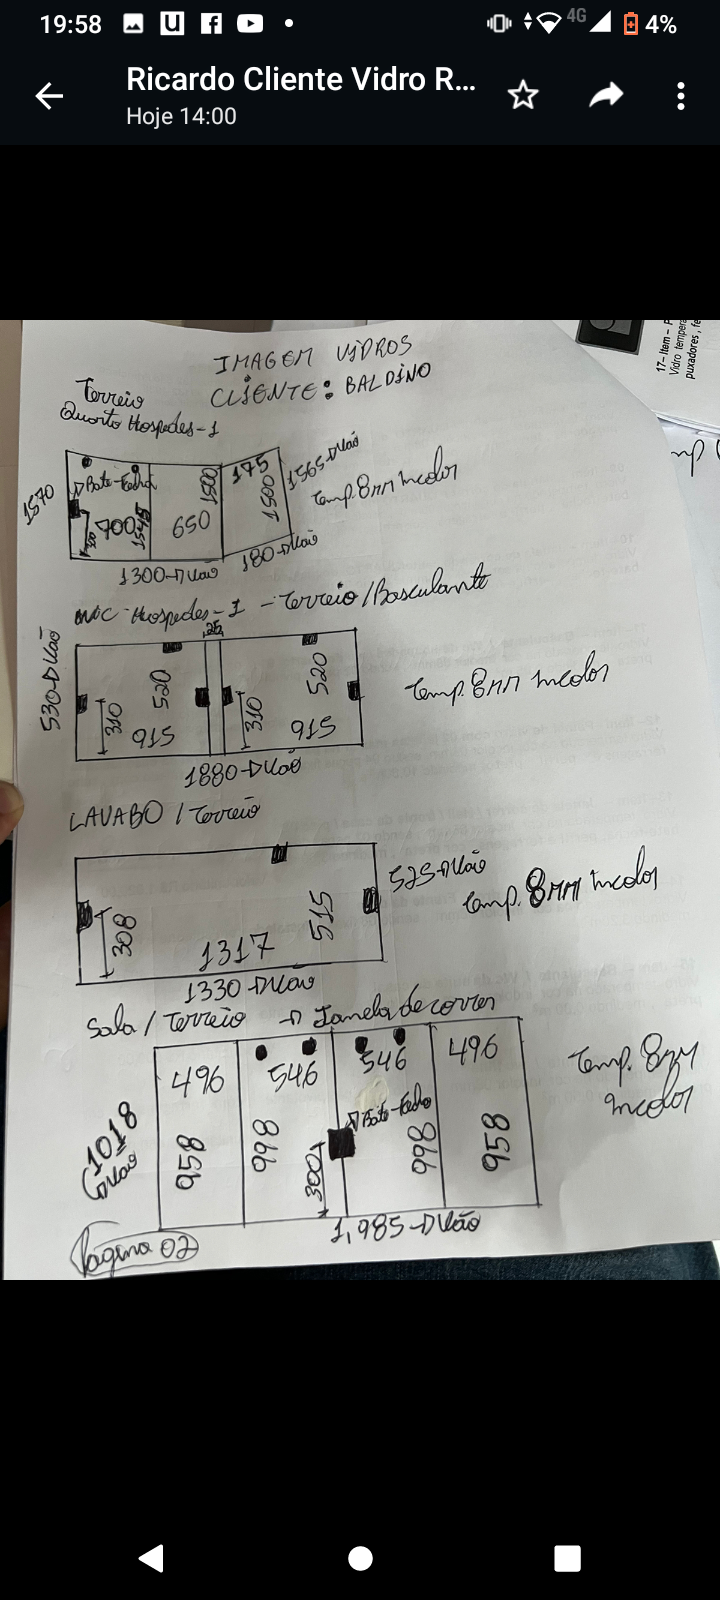 19:58
4G
4%
Ricardo Cliente Vidro R...
Hoje 14:00
17- Item - P
Vidro tempera
puxadores, fe
IMAGEM VIDROS
CLIENTE: BALDINO
Terreio
Quarto Hospedes-1
1570
Bate-Fecha
700
1545
650
1500
175
1500
1565-Vão
180-Vão
1300-Vão
Temp. 8mm incolor
WC-Hospedes-1 - Terreio/Basculante
25
530-Vão
310
520
915
310
520
915
1880-Vão
Temp. 8mm incolor
LAVABO / Terreio
308
1317
515
525-Vão
1330-Vão
Temp. 8mm incolor
Sala / Terreio → Janela de correr
1018
Vão
496
958
546
998
300
546
Bate-Fecho
998
496
958
1,985-Vão
Temp. 8mm
incolor
Página 02